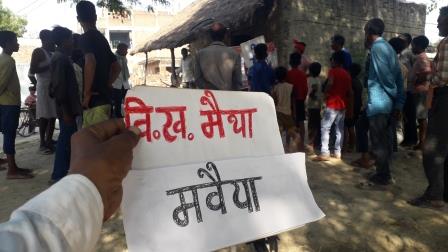 वि.ख. मैथा
मवैया